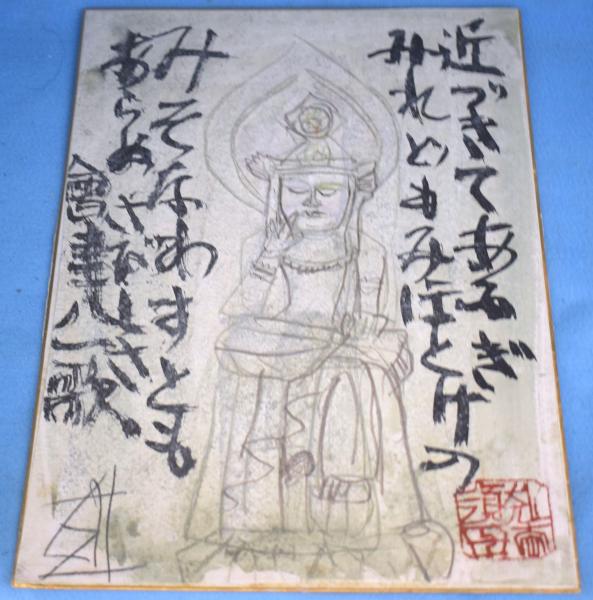 近づきてあふぎ
みれどもみほとけの
みそなわすとも
あらぬさびしさ
會津八一歌